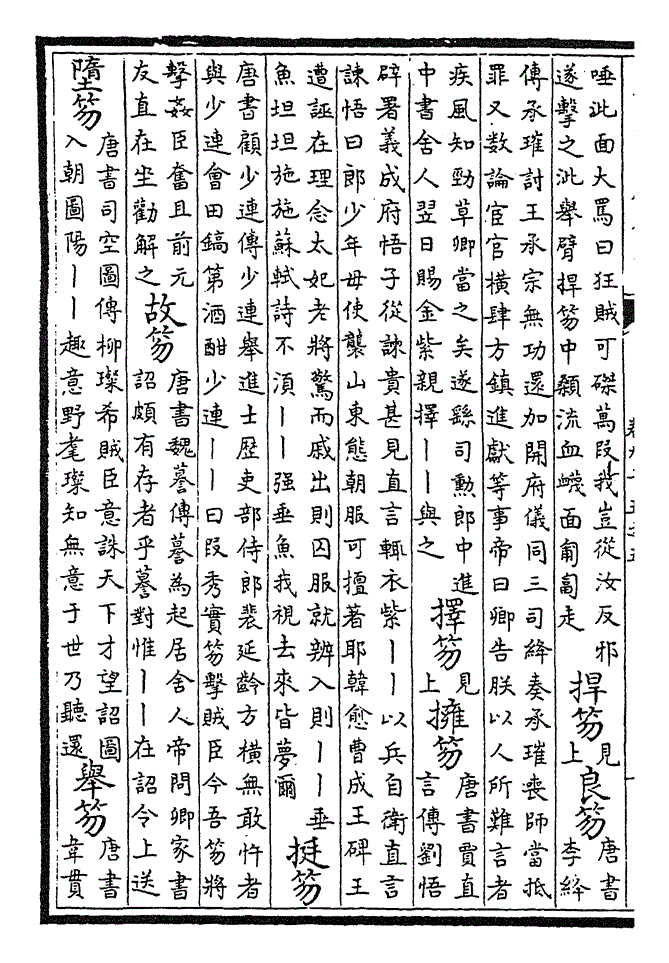 唾泚面大罵曰狂賊可磔萬段我豈從汝反邪
遂擊之泚舉臂捍笏中顙流血衊面匍匐走
捍笏
見
上
良笏
唐書
李絳
傳承璀討王承宗無功還加開府儀同三司絳奏承璀喪師當抵
罪又數論宦官橫肆方鎮進獻等事帝曰卿告朕以人所難言者
疾風知勁草卿當之矣遂繇司勳郎中進
中書舍人翌日賜金紫親擇丨丨與之
擇笏
見
上
擁笏
唐書賈直
言傳劉悟
辟署義成府悟子從諫貴甚見直言輒衣紫丨丨以兵自衛直言
諫悟曰郎少年毋使襲山東態朝服可擅著耶韓愈曹成王碑王
遭誣在理念太妃老將驚而戚出則囚服就辨入則丨丨垂
魚坦坦施施蘇軾詩不湏丨丨强垂魚我視去來皆夢爾
挺笏
唐書顧少連傳少連舉進士歷吏部侍郎裴延齡方橫無敢忤者
與少連會田鎬第酒酣少連丨丨曰段秀實笏擊賊臣今吾笏將
擊姦臣奮且前元
友直在坐勸解之
故笏
唐書魏謩傳謩為起居舍人帝問卿家書
詔頗有存者乎謩對惟丨丨在詔令上送
墮笏
唐書司空圖傳柳璨希賊臣意誅天下才望詔圖
入朝圖陽丨丨趣意野耄璨知無意于世乃聽還
舉笏
唐書
韋貫